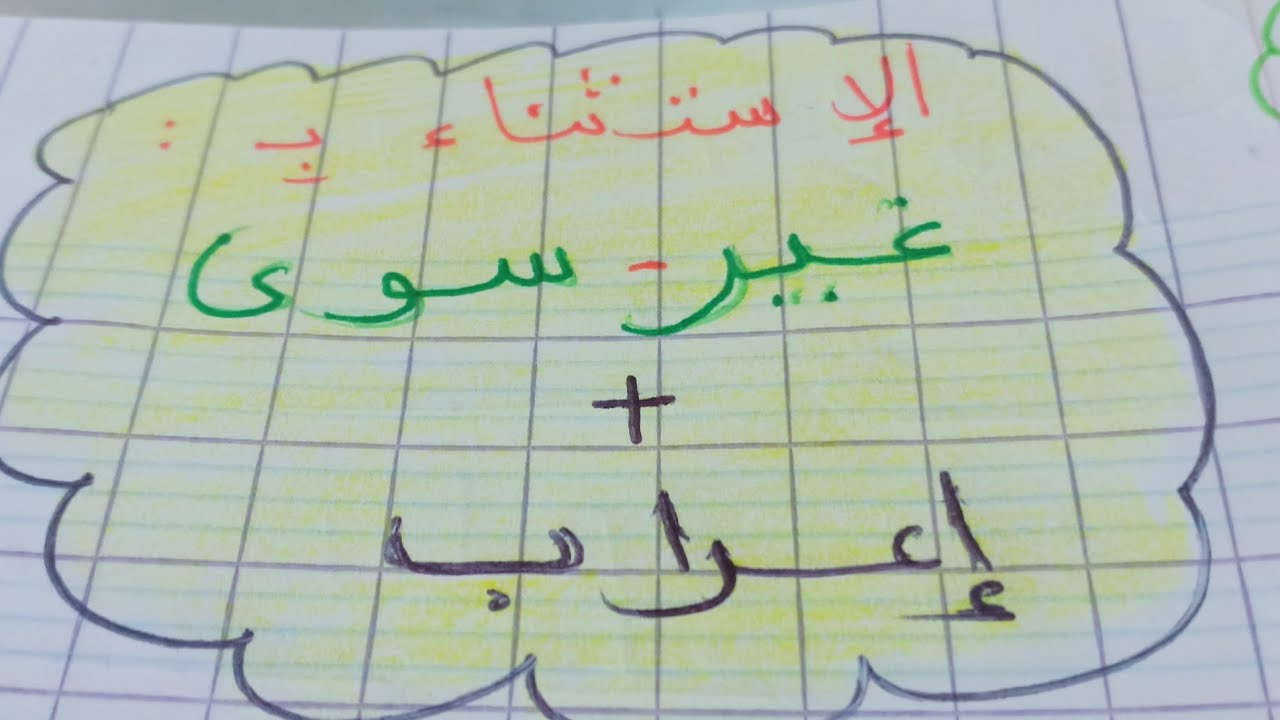 الإستثناء بـ :
غير - سوى
+
إعراب